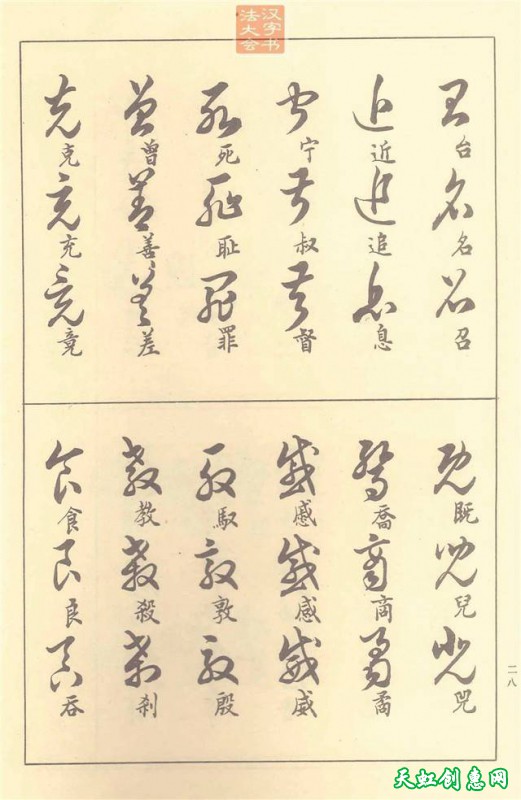 汉字书
法大会
台名召
近追息
宁叔督
死耻罪
曾善差
克充竟
既兒兕
喬商矞
慼感威
馭敦殷
教殺刹
食良吞
二八
天虹创惠网